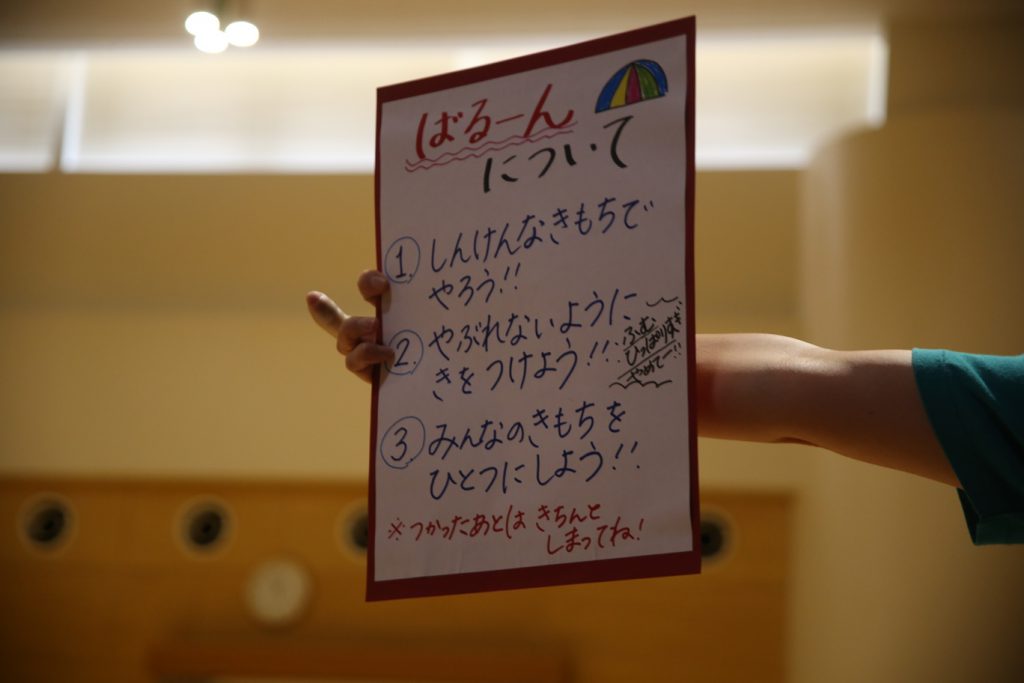 ばるーん
について
① しんけんなきもちで
やろう!!
② やぶれないように
きをつけよう!!
ふむ
ひっぱりすぎ
やめてー!!
③ みんなのきもちを
ひとつにしよう!!
※つかったあとは きちんと
しまってね!